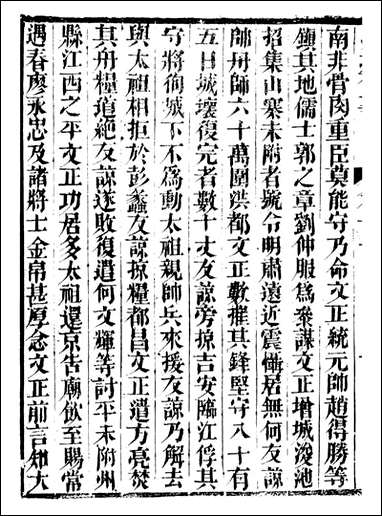 南非骨肉重臣莫能守乃命文正統元帥趙得勝等
鎮其地儒士郭之章劉仲服爲叅謀文正增城浚池
招集山寨未附者號令明肅遠近震懾居無何友諒
帥舟師六十萬圍洪都文正數摧其鋒堅守八十有
五日城壞復完者數十丈友諒旁掠吉安臨江俘其
守將徇城下不爲動太祖親帥兵來援友諒乃解去
與太祖相拒於彭蠡友諒掠糧都昌文正遣方亮焚
其舟糧道絶友諒遂敗復遣何文輝等討平未附州
縣江西之平文正功居多太祖還京告廟飲至賜常
遇春廖永忠及諸將士金帛甚厚念文正前言知大